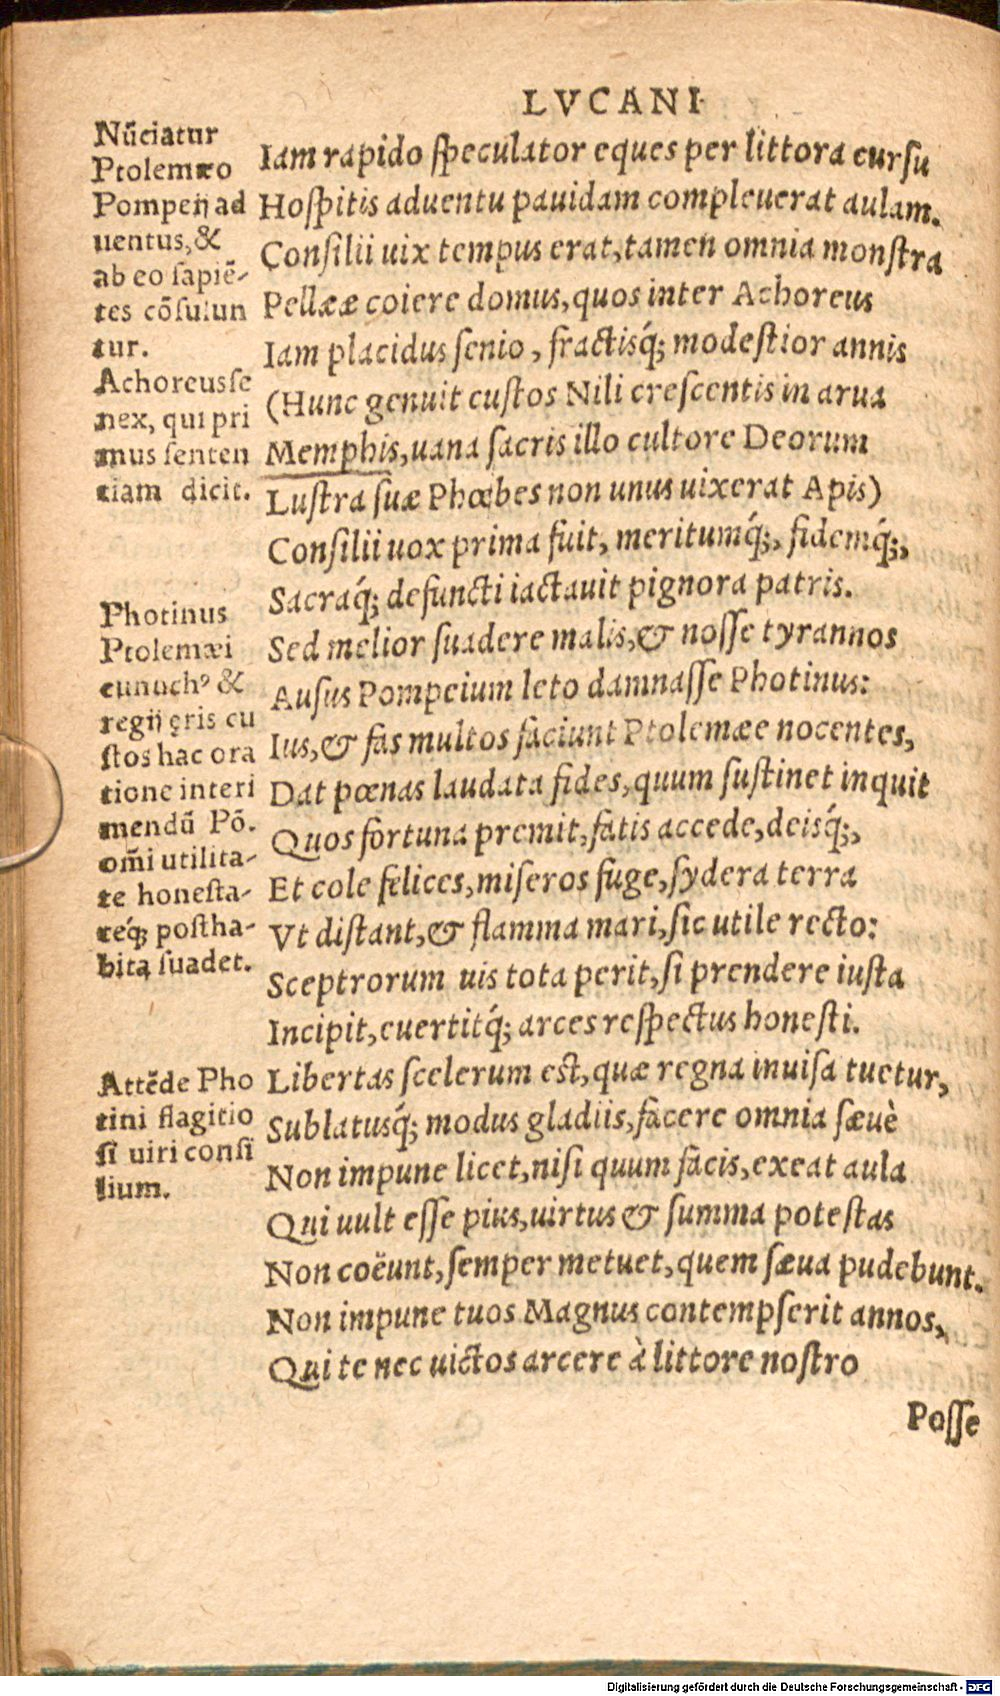 LVCANI
Nũciatur
Ptolemæo
Pompeij ad
uentus, &
ab eo sapiẽ-
tes cõsulun
tur.
Achoreus se
nex, qui pri
mus senten
tiam dicit.
Photinus
Ptolemæi
eunuchꝰ &
regij ęris cu
stos hac ora
tione interi
mendũ Põ.
om̃i utilita-
te honesta-
teq́; postha-
bita suadet.
Attẽde Pho
tini flagitio
si uiri consi
lium.
Iam rapido speculator eques per littora cursu
Hospitis aduentu pauidam compleuerat aulam.
Consilii uix tempus erat, tamen omnia monstra
Pellææ coiere domus, quos inter Achoreus
Iam placidus senio, fractisq́; modestior annis
(Hunc genuit custos Nili crescentis in arua
Memphis, uana sacris illo cultore Deorum
Lustra suæ Phœbes non unus uixerat Apis)
Consilii uox prima fuit, meritumq́;, fidemq́;,
Sacraq́; defuncti iactauit pignora patris.
Sed melior suadere malis, & nosse tyrannos
Ausus Pompeium leto damnasse Photinus:
Ius, & fas multos faciunt Ptolemæe nocentes,
Dat pœnas laudata fides, quum sustinet inquit
Quos fortuna premit, fatis accede, deisq́;,
Et cole felices, miseros fuge, sydera terra
Vt distant, & flamma mari, sic utile recto:
Sceptrorum uis tota perit, si prendere iusta
Incipit, euertitq́; arces respectus honesti.
Libertas scelerum est, quæ regna inuisa tuetur,
Sublatusq́; modus gladiis, facere omnia sæuè
Non impune licet, nisi quum facis, exeat aula
Qui uult esse pius, uirtus & summa potestas
Non coëunt, semper metuet, quem sæua pudebunt.
Non impune tuos Magnus contempserit annos,
Qui te nec uictos arcere à littore nostro
Posse
Digitalisierung gefördert durch die Deutsche Forschungsgemeinschaft - DFG